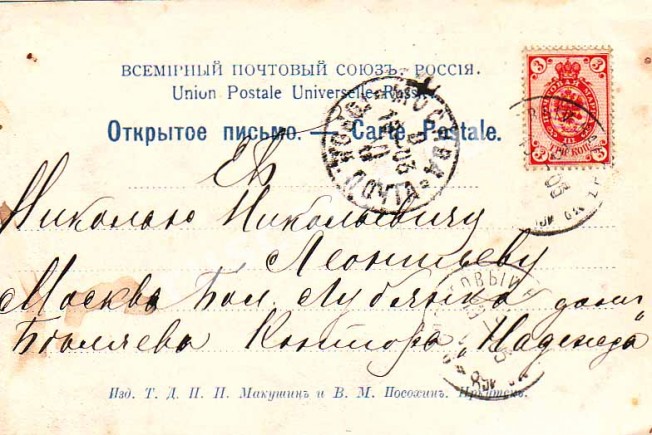 ВСЕМІРНЫЙ ПОЧТОВЫЙ СОЮЗЪ. РОССІЯ.
Union Postale Universelle. Russie.
Открытое письмо. — Carte Postale.
3 3
ТРИ КОП.
3 3
МОСКВА
ПОЧТА
ЕВ
Николаю Николаевичу
Леонтьеву
Москва Бол. Лубянка домъ
Контора Надежда
Изд. Т. Д. П. И. Макушинъ и В. М. Посохинъ. Иркутскъ.